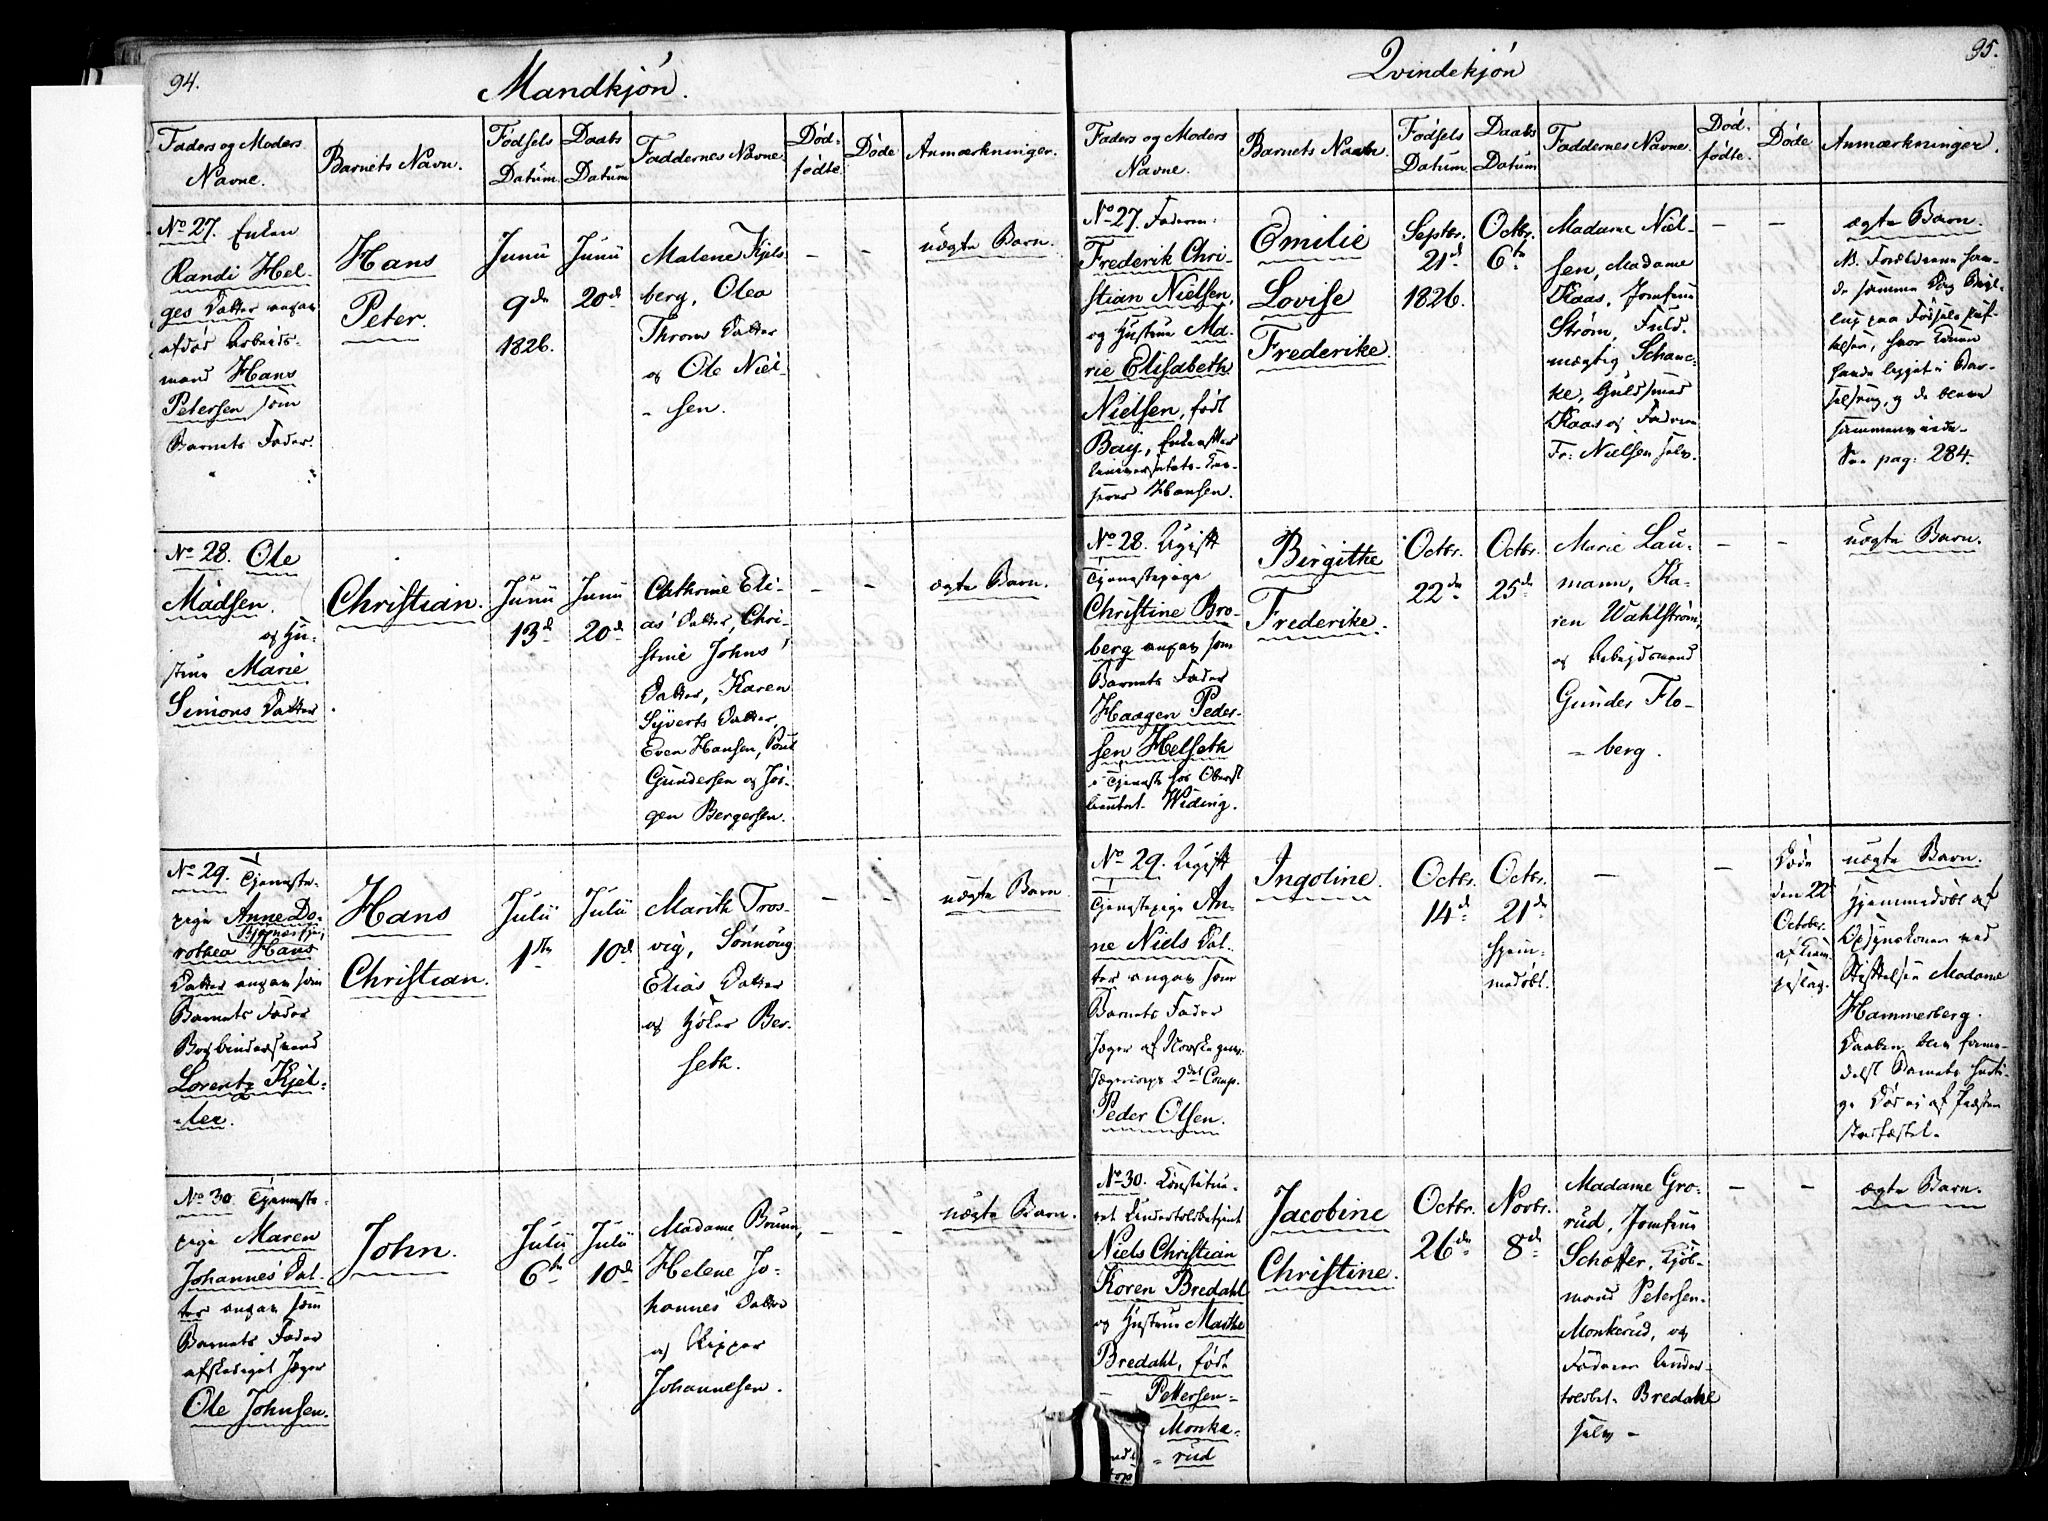 94.
Mandkjön.
Faders og Moders
Navne.
Barnets Navn.
Födsels
Datum.
Daabs
Datum
Faddernes Navne.
Död-
fødte.
Døde
Anmærkninger.
No 27. Enken
Randi Hel-
ges Datter angav
afdøde Arbeids-
mand Hans
Petersen som
Barnets Fader.
Hans
Peter.
Junii
9de
1826.
Junii
20de
Malene Kjels
berg, Olea
Thrane Datter
og Ole Niel-
- sen.
-
-
uægte Barn.
No 28. Ole
Madsen.
og Hu-
strue Marie
Simons Datter
Christian.
Junii
13d
Junii
20de
Cathrine Eli-
as' Datter, Chri-
stine Johns'
Datter, Karen
Syverts Datter,
Even Hansen, Poul
Gundersen og Jör-
gen Bergersen.
-
-
ægte Barn.
No 29. Tjeneste-
pige Anne Do-
rothea Hans
Datter angav som
Barnets Fader
Bogbindersvend
Lorentz Kjel-
-ler.
Hans
Christian.
Julii
1ste
Julii
10de
Marith Tros-
vig, Sönnöug
Elias Datter
og Höker Ber-
seth.
-
-
uægte Barn
No 30. Tjeneste-
pige Maren
Johannes' Dat-
ter angav som
Barnets Fader
afskediget Jæger
Ole Johnsen.
John.
Julii
6te
Julii
10de
Madame Bruun,
Helene Jo-
hannes' Datter
og Kipper
Johannesen.
-
-
uægte Barn.
95.
Qvindekjön
Faders og Moders
Navne.
Barnets Navn.
Födsels
Datum.
Daabs
Datum
Faddernes Navne.
Död-
fødte.
Døde
Anmærkninger.
No 27. Faderen:
Frederik Chri-
stian Nielsen,
og Hustrue Ma-
rie Elisabeth
Nielsen, født
Bay, Enke efter
Universitets-
Hansen.
Emilie
Lovise
Frederike.
Septbr.
21d
1826.
Octbr.
6te
Madame Niel-
sen, Madame
Kaas, Jomfrue
Strøm, Fuld-
mægtig Schanc-
ke, Guldsmed
Kaas og Faderen
Fr: Nielsen selv.
-
-
ægte Barn.
NB. Forældrene hav-
de samme Dag Bryl-
lup paa Fødsels stif-
telsen, hvor Konen
havde ligget i Bar-
selseng, og de bleve
sammenviede.
See pag: 284.
No 28. Ugift
Tjenestepige
Christine Bro-
berg angav som
Barnets Fader
Haagen Peder-
sen Helseth
i Tjeneste hos Oberst
lieutnt. Widing.
Birgithe
Frederike.
Octbr.
22de
Octbr.
25de
Marie Lau-
mann, Ka-
ren Wahlström,
og Arbejdsmand
Gunder Flo-
- berg.
-
-
uægte Barn.
No 29. Ugift
Tjenestepige An-
ne Niels Dat-
ter angav som
Barnets Fader
Jæger af Norske
Jægercorps 2det Comp.
Peder Olsen.
Ingoline.
Octbr.
14d
Octbr.
21de
hjem-
medøbt.
-
-
Døde
den 22
October.
af Kram-
peslag.
uægte Barn.
Hjemmedøbt af
Opsynskonen ved
Stiftelsen Madame
Hammerberg.
Daaben blev forme-
delst Barnets hurti-
ge Død ej af Præsten
stadfæstet.
No 30. Constitue-
ret Undertoldbetjent
Niels Christian
Koren Bredahl
og Hustrue Marthe
Bredahl, fødte
Pettersen-
Monke-
-rud
Jacobine
Christine.
Octbr.
26de
Novbr.
8de
Madame Gro-
rud, Jomfrue
Schøffer, Kjöb-
mand Petersen-
Monkerud, og
Faderen Under-
toldbet. Bredahl
selv -
-
-
ægte Barn.